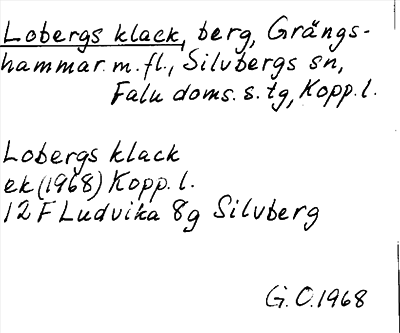 Lobergs klack, berg, Grängs-
hammar m. fl., Silvbergs sn,
Falu doms. s. tg, Kopp. l.
Lobergs klack
ek (1968) Kopp. l.
12 F Ludvika 8g Silvberg
G. O. 1968